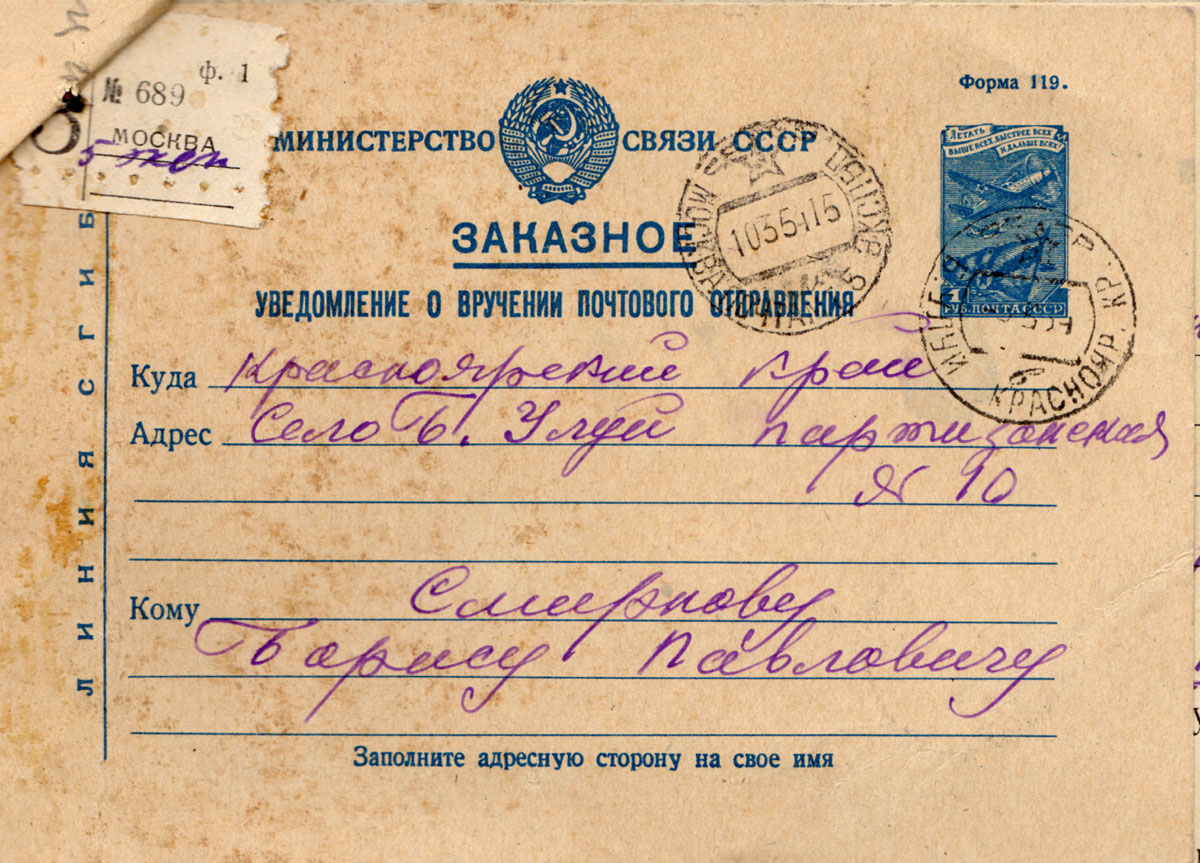 ф. 1
№ 689
МОСКВА
5
Форма 119.
МИНИСТЕРСТВО СВЯЗИ СССР
ЛЕТАТЬ
ВЫШЕ ВСЕХ, БЫСТРЕЕ ВСЕХ
И ДАЛЬШЕ ВСЕХ!
РУБ. ПОЧТА СССР
ЗАКАЗНОЕ
УВЕДОМЛЕНИЕ О ВРУЧЕНИИ ПОЧТОВОГО ОТПРАВЛЕНИЯ
МОСКВА
10354.15
КРАСНОЯР. КР.
Куда Красноярский край
Адрес Село Б. Улуй Партизанская
№ 10
Кому Смирнову
Борису Павловичу
Заполните адресную сторону на свое имя
ЛИНИЯ СГИБ